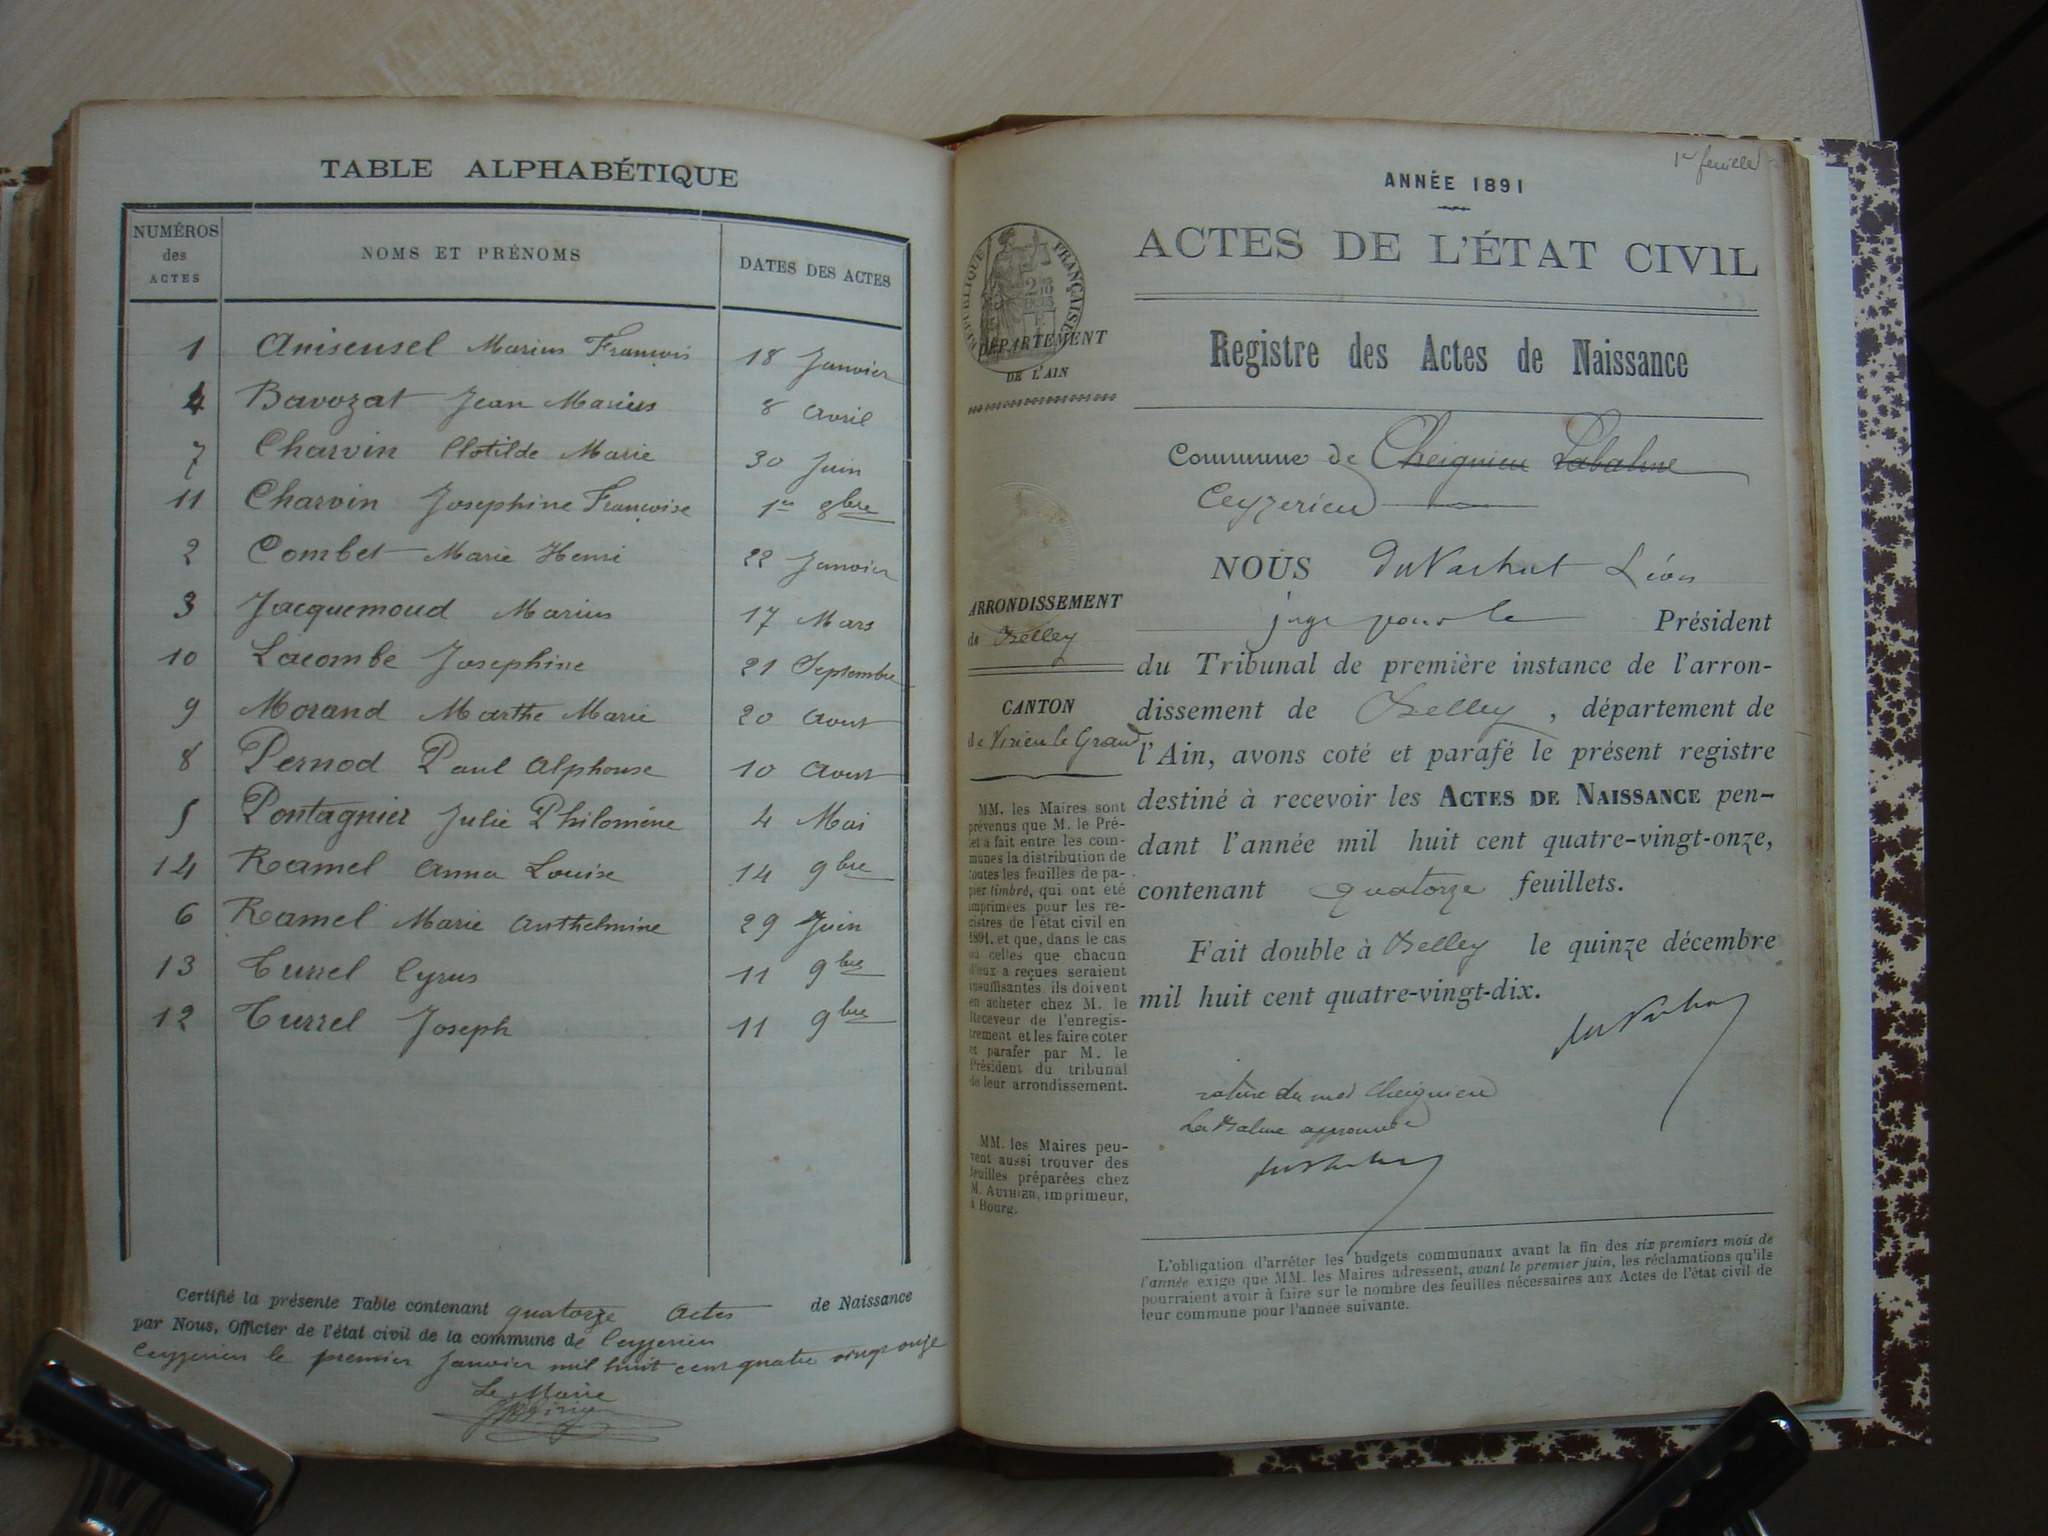 TABLE ALPHABÉTIQUE
NUMÉROS des ACTES
NOMS ET PRÉNOMS
DATES DES ACTES
1 Aniseusel Marius François 18 Janvier
4 Bavozat Jean Marius 8 Avril
7 Charvin Clotilde Marie 30 Juin
11 Charvin Josephine Françoise 1er 8bre
2 Combet Marie Henri 22 Janvier
3 Jacquemoud Marius 17 Mars
10 Lacombe Josephine 21 Septembre
9 Morand Marthe Marie 20 Aout
8 Pernod Paul Alphonse 10 Aout
5 Pontagnier Julie Philomène 4 Mai
14 Ramel Anna Louise 14 9bre
6 Ramel Marie Anthelmine 29 Juin
13 Turrel Cyrus 11 9bre
12 Turrel Joseph 11 9bre
Certifié la présente Table contenant quatorze Actes de Naissance
par Nous, Officier de l'état civil de la commune de Ceyzerieu
Ceyzerieu le premier Janvier mil huit cent quatre vingt onze
Le Maire
1re feuille
ANNÉE 1891
ACTES DE L'ÉTAT CIVIL
RÉPUBLIQUE FRANÇAISE
DÉPARTEMENT
DE L'AIN
Registre des Actes de Naissance
Commune de Cheignieu Labalme
Ceyzerieu
ARRONDISSEMENT
de Belley
CANTON
de Virieu le Grand
MM. les Maires sont
prévenus que M. le Pré-
fet a fait entre les com-
munes la distribution de
toutes les feuilles de pa-
pier timbré, qui ont été
imprimées pour les re-
gistres de l'état civil en
1891, et que, dans le cas
où celles que chacun
d'eux a reçues seraient
insuffisantes, ils doivent
en acheter chez M. le
Receveur de l'enregis-
trement et les faire coter
et parafer par M. le
Président du tribunal
de leur arrondissement.
MM. les Maires peu-
vent aussi trouver des
feuilles préparées chez
M. AUTHIER, imprimeur,
à Bourg.
NOUS Léon
juge pour le Président
du Tribunal de première instance de l'arron-
dissement de Belley, département de
l'Ain, avons coté et parafé le présent registre
destiné à recevoir les ACTES DE NAISSANCE pen-
dant l'année mil huit cent quatre-vingt-onze,
contenant quatorze feuillets.
Fait double à Belley le quinze décembre
mil huit cent quatre-vingt-dix.
rature du mot Cheignieu
La Balme approuvée
L'obligation d'arrêter les budgets communaux avant la fin des six premiers mois de
l'année exige que MM. les Maires adressent, avant le premier juin, les réclamations qu'ils
pourraient avoir à faire sur le nombre des feuilles nécessaires aux Actes de l'état civil de
leur commune pour l'année suivante.